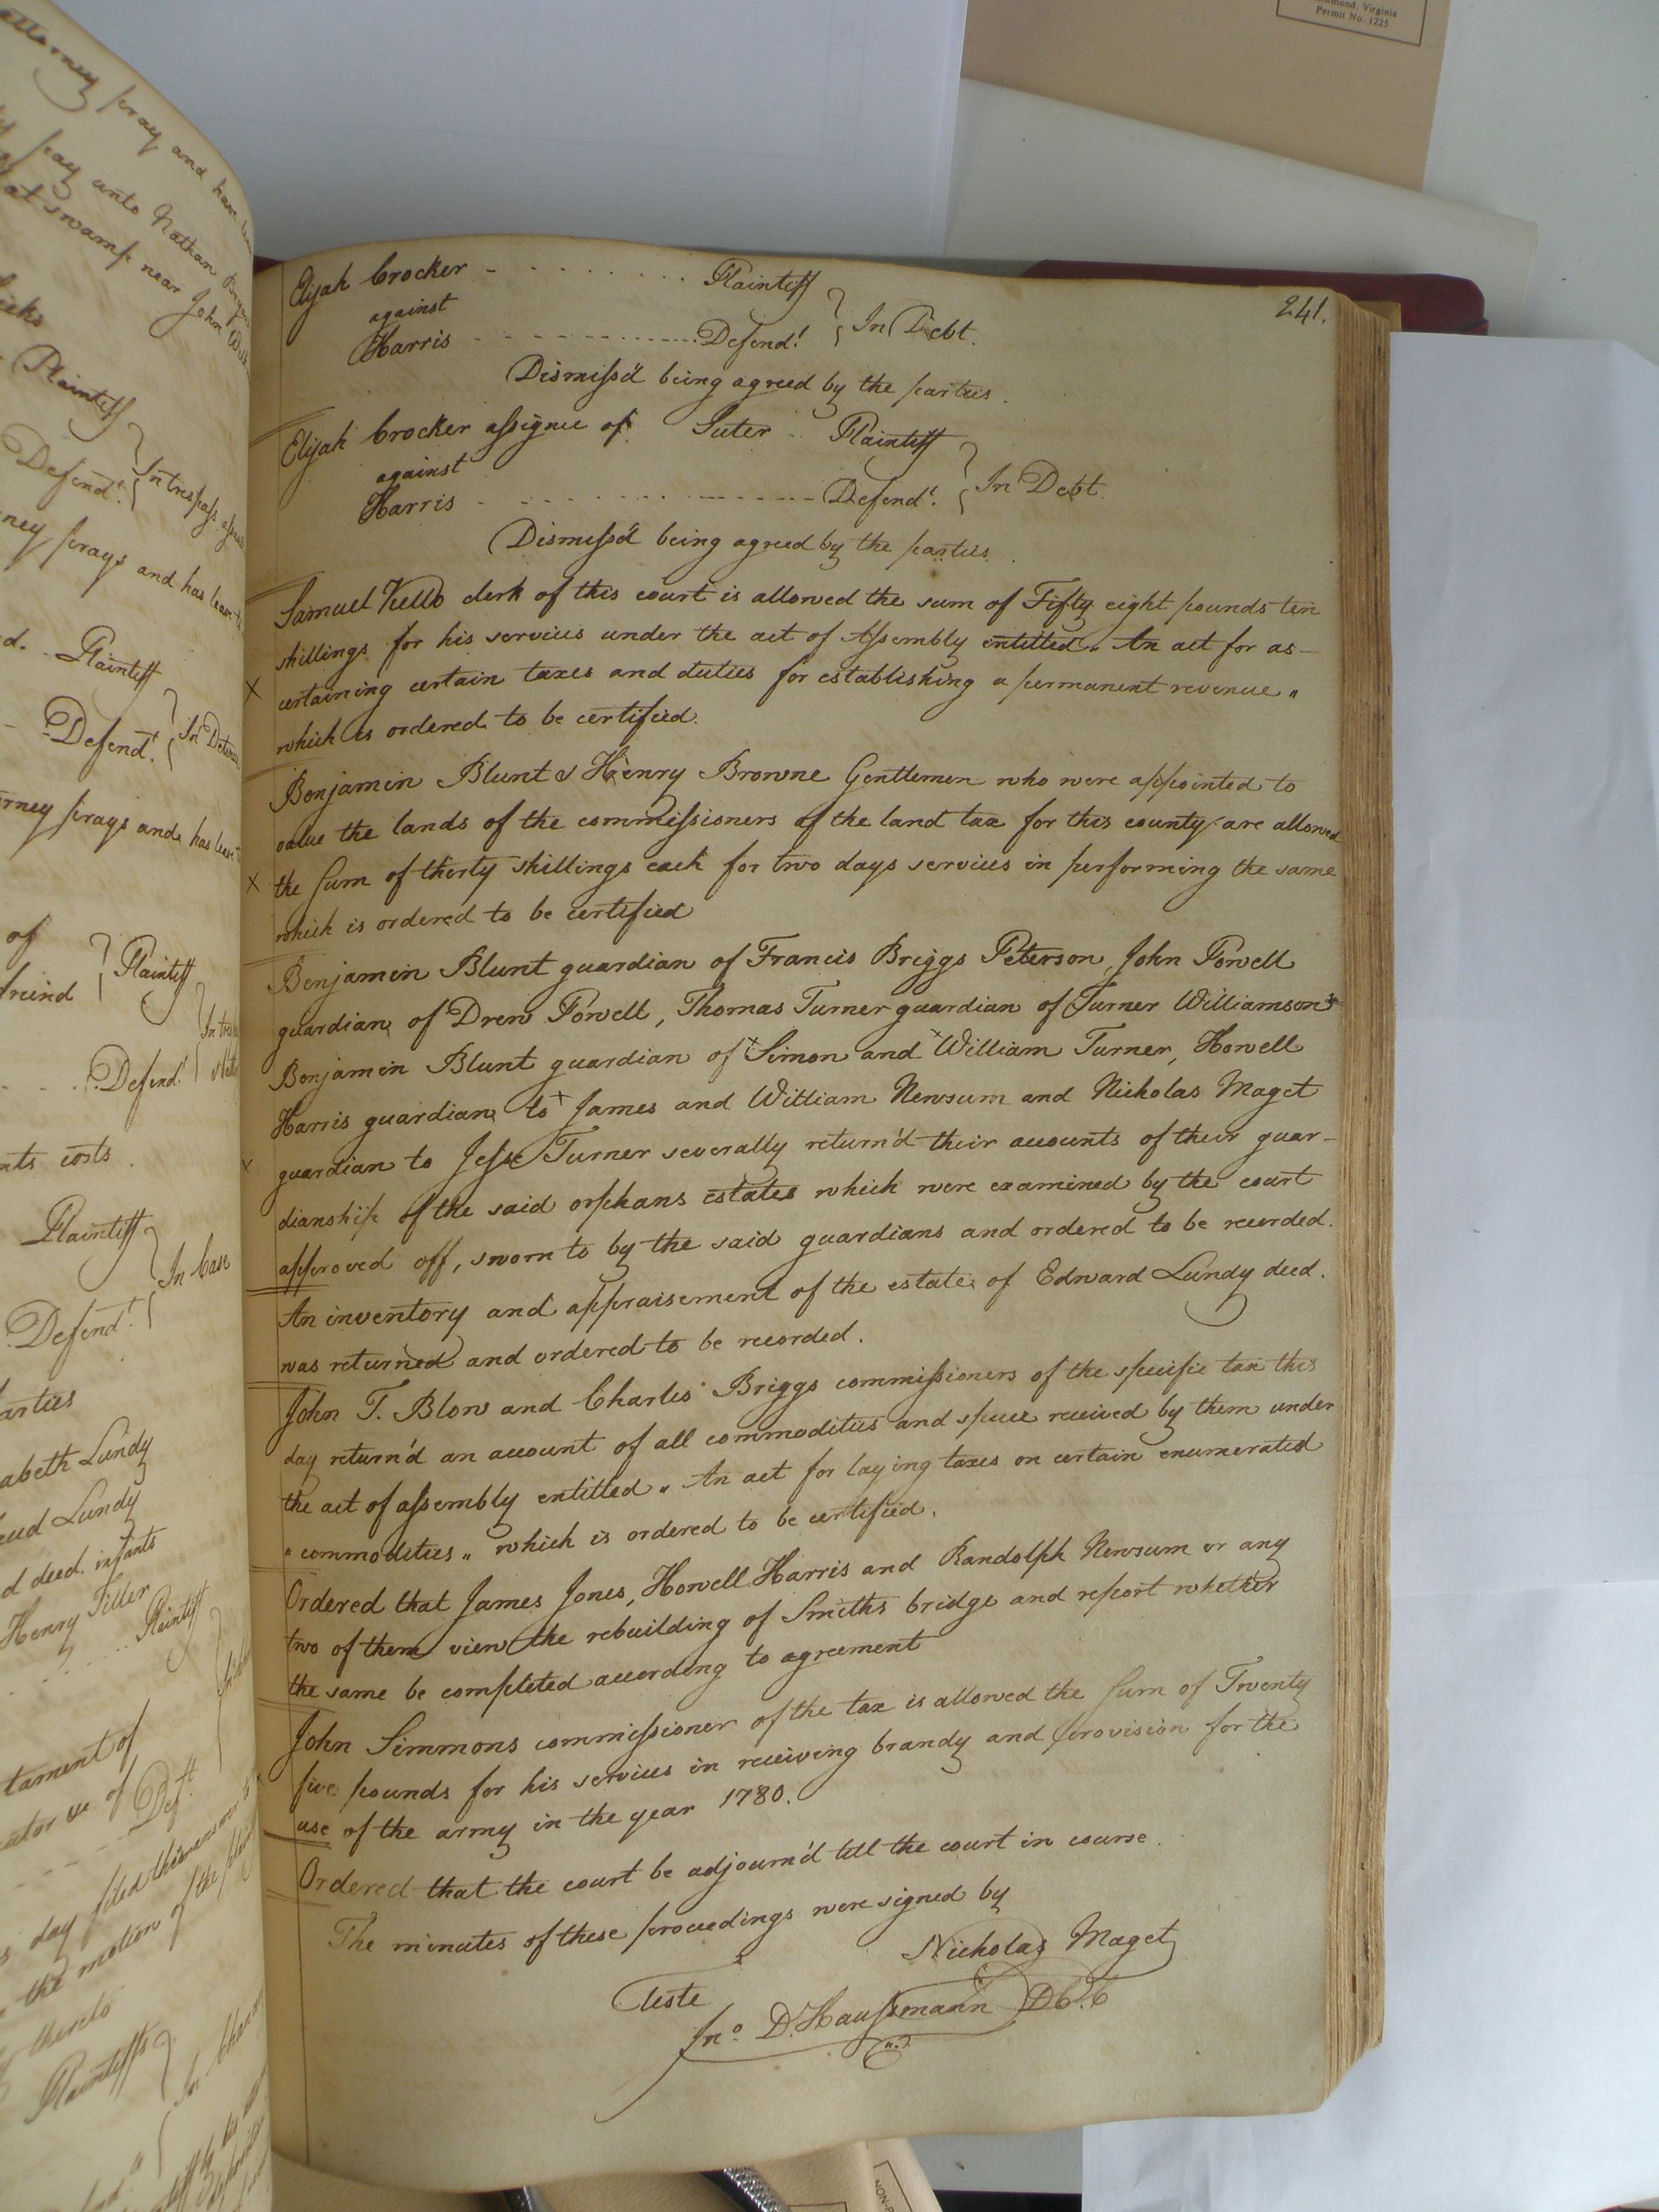 Richmond, Virginia
Permit No. 1225
attorney pray and has
pay unto Nathan
at swamp near John
Plaintiff
Defend.t
In trespass assault
prays and has leave to
Plaintiff
Defend.t
In Detinue
prays and has leave
of
Plaintiff
Defend.t
costs
Plaintiff
In Case
Defend.t
Lundy
Lundy
decd. infants
Henry Tiller
Plaintiff
of
of
Def.t
day filed this answer
the motion of the
thereto
Plaintiffs
241.
Elijah Crocker - - - - - - - - Plaintiff
against
In Debt.
Harris - - - - - - - - - - - - Defend.t
Dismiss'd being agreed by the parties.
Elijah Crocker assignee of Suter .. Plaintiff
against
In Debt.
Harris - - - - - - - - - - - - Defend.t
Dismiss'd being agreed by the parties.
Samuel Kello clerk of this court is allowed the sum of Fifty eight pounds ten
shillings for his services under the act of Assembly entitled " An act for as-
x certaining certain taxes and duties for establishing a permanent revenue "
which is ordered to be certified.
Benjamin Blunt & Henry Browne Gentlemen who were appointed to
value the lands of the commissioners of the land tax for this county are allowed
x the sum of thirty shillings each for two days services in performing the same
which is ordered to be certified
Benjamin Blunt guardian of Francis Briggs Peterson, John Powell
guardian of Drew Powell, Thomas Turner guardian of Turner Williamson
Benjamin Blunt guardian of x Simon and x William Turner, Howell
Harris guardian to x James and William Newsum and Nicholas Maget
x guardian to Jesse Turner severally return'd their accounts of their guar-
dianship of the said orphans estates which were examined by the court
approved off, sworn to by the said guardians and ordered to be recorded.
An inventory and appraisement of the estate of Edward Lundy decd.
was returned and ordered to be recorded.
John T. Blow and Charles Briggs commissioners of the specific tax this
day return'd an account of all commodities and specie received by them under
the act of assembly entitled " An act for laying taxes on certain enumerated
" commodities " which is ordered to be certified.
Ordered that James Jones, Howell Harris and Randolph Newsum or any
two of them view the rebuilding of Smiths bridge and report whether
the same be completed according to agreement
John Simmons commissioner of the tax is allowed the sum of Twenty
five pounds for his services in receiving brandy and provision for the
use of the army in the year 1780.
Ordered that the court be adjourn'd till the court in course.
The minutes of these proceedings were signed by
Nicholas Maget
Teste
Jno. D. Haussmann D.C.C